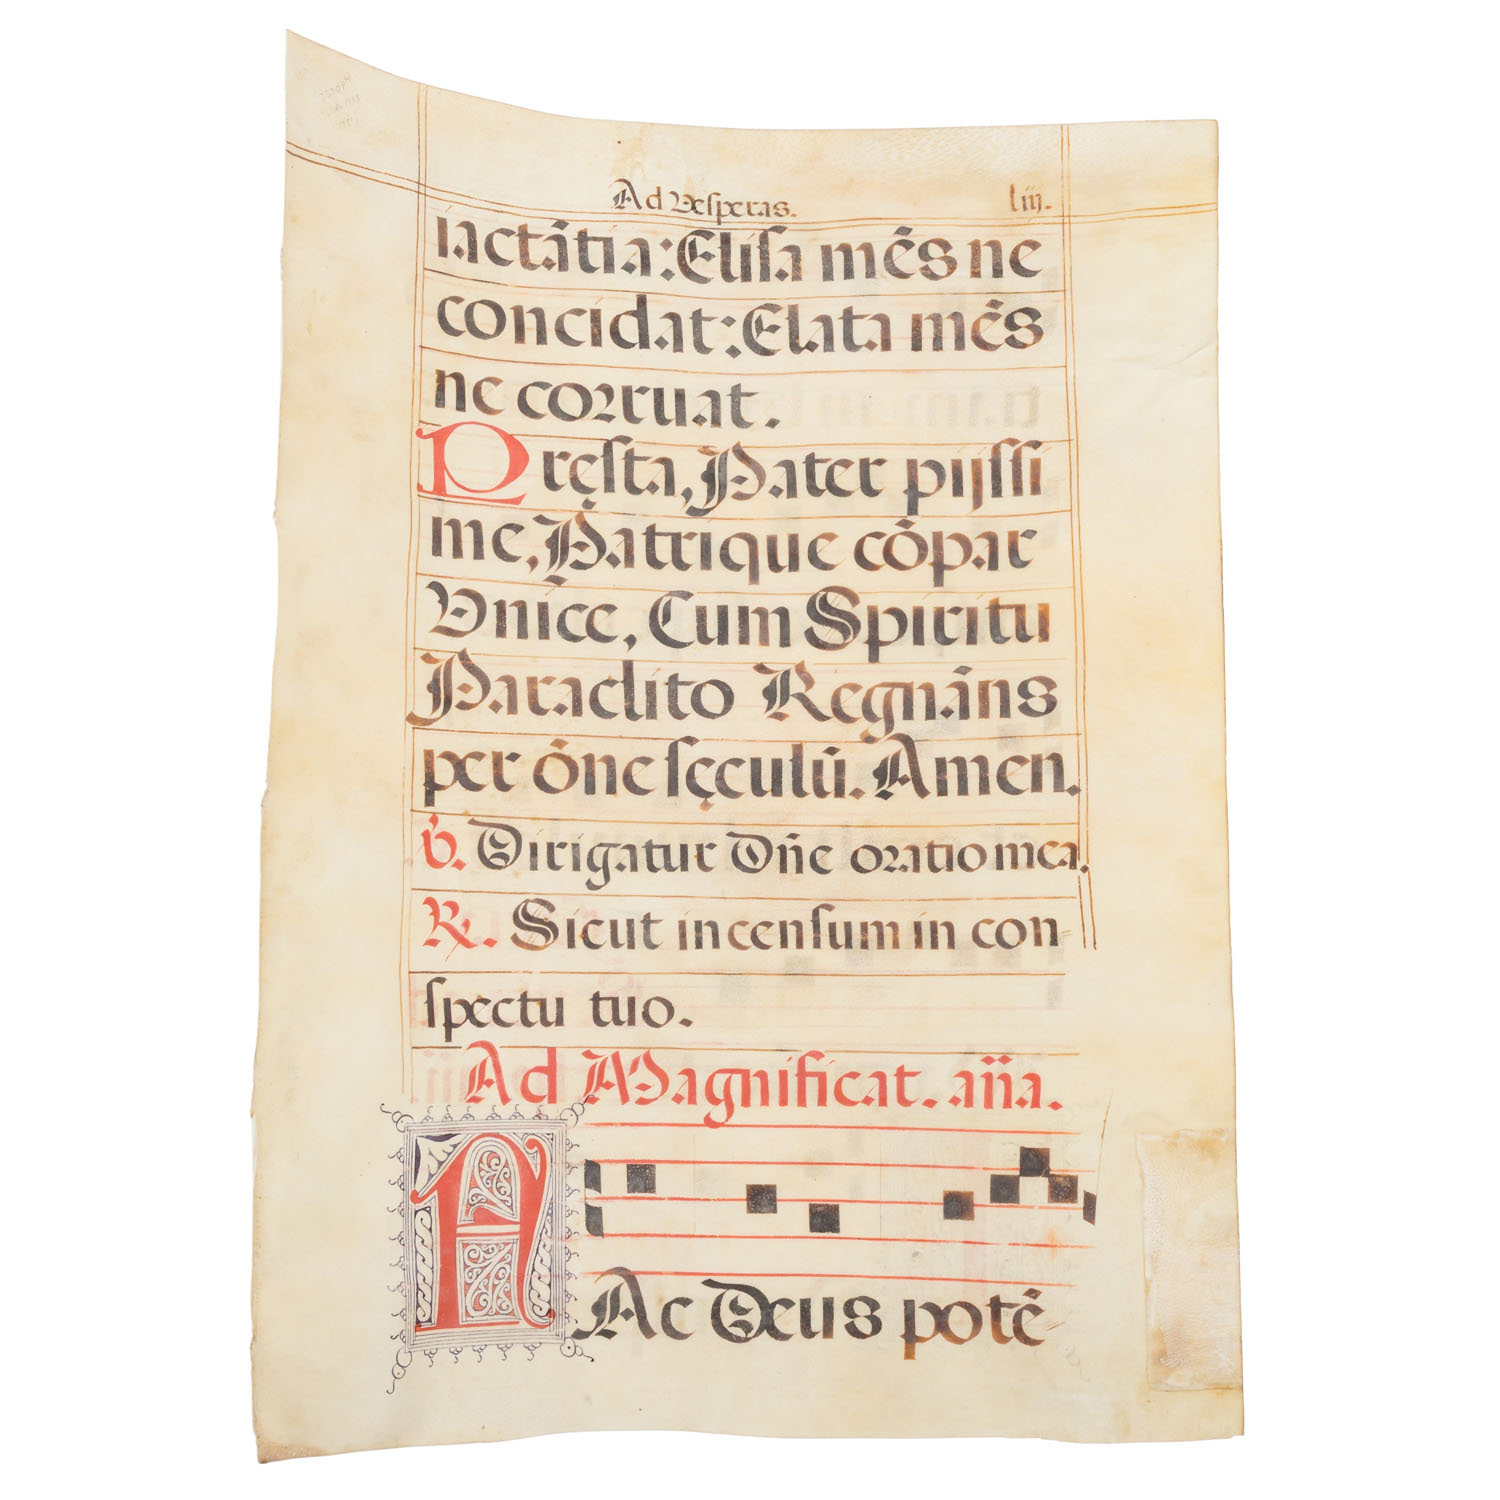 Ad Vesperas. liij.
iactātia: Elisa mēs ne
concidat: Elata mēs
ne corruat.
Pręsta, Pater pijssi
me, Patrique cōpar
Vnice, Cum Spiritu
Paraclito Regnāns
per ōne sęculū. Amen.
℣. Dirigatur Dñe oratio mea.
℟. Sicut incensum in con-
spectu tuo.
Ad Magnificat. aña.
A Ac Deus potē-